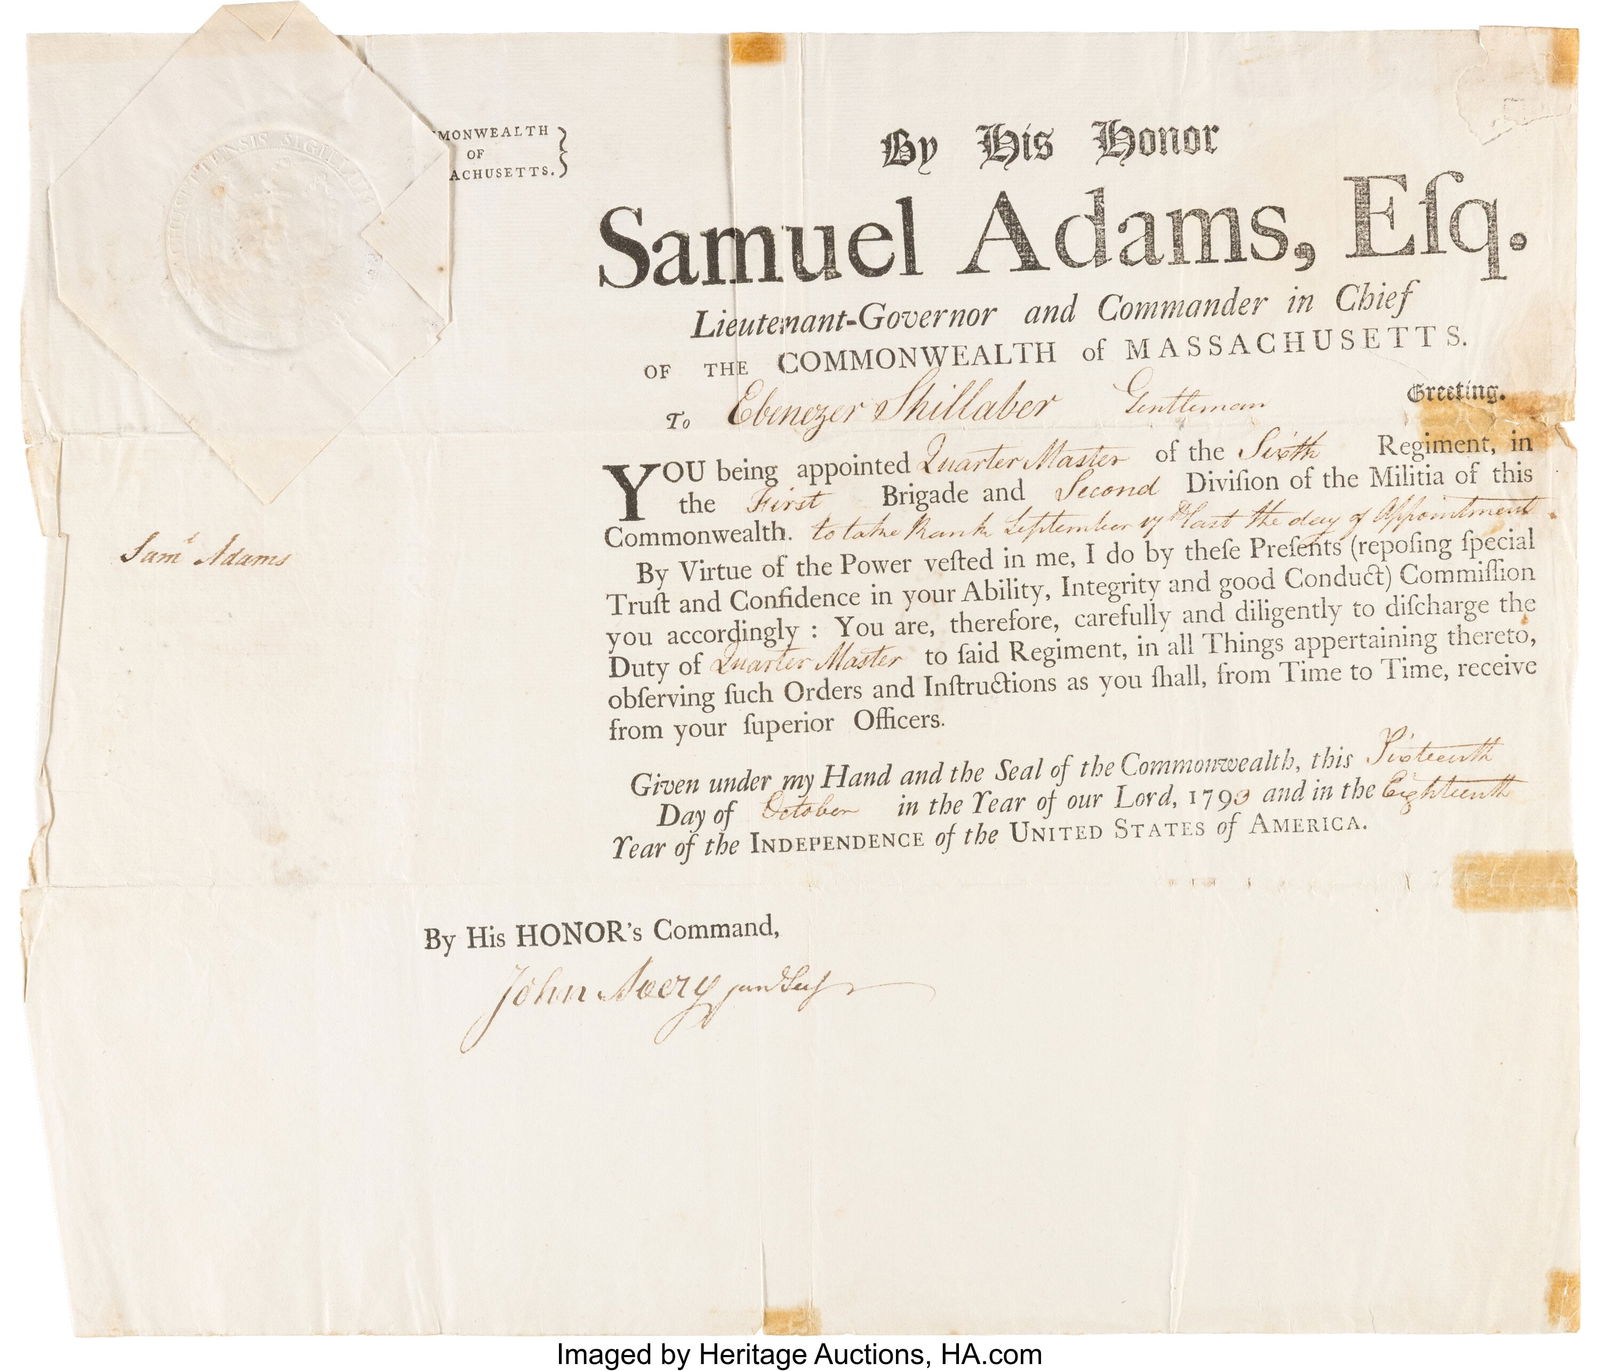 MONWEALTH
OF
ACHUSETTS.
TENSIS SIGILL
By His Honor
Samuel Adams, Eſq.
Lieutenant-Governor and Commander in Chief
OF THE COMMONWEALTH of MASSACHUSETTS.
To Ebenezer Shillaber Gentleman Greeting.
YOU being appointed Quarter Master of the Sixth Regiment, in
the First Brigade and Second Diviſion of the Militia of this
Commonwealth. to take Rank September 17th last the day of Appointment.
By Virtue of the Power veſted in me, I do by theſe Preſents (repoſing ſpecial
Truſt and Confidence in your Ability, Integrity and good Conduct) Commiſſion
you accordingly : You are, therefore, carefully and diligently to diſcharge the
Duty of Quarter Master to ſaid Regiment, in all Things appertaining thereto,
obſerving ſuch Orders and Inſtructions as you ſhall, from Time to Time, receive
from your ſuperior Officers.
Sam^l Adams
Given under my Hand and the Seal of the Commonwealth, this Sixteenth
Day of October in the Year of our Lord, 1793 and in the Eighteenth
Year of the INDEPENDENCE of the UNITED STATES of AMERICA.
By His HONOR's Command,
John Avery jun Secy
Imaged by Heritage Auctions, HA.com